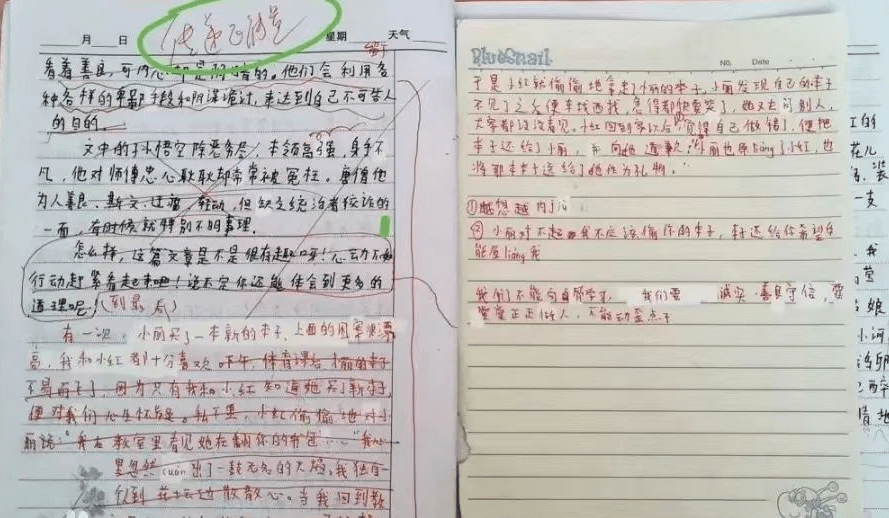 月 日 传递正能量 星期 天气
看着善良,可内心却是阴暗的。他们会利用各
种各样的卑鄙手段和阴谋诡计,来达到自己不可告人
的目的。
文中的孙悟空除恶务尽,本领高强,身手不
凡,他对师傅忠心耿耿却常常被冤枉。唐僧他
为人善良、斯文、迂腐、轻动,但缺乏统治者狡诈的
一面,有时候就特别不明事理。
怎么样,这篇文章是不是很有趣呀!心动不如
行动赶紧看起来吧!说不定你还能体会到更多的
道理呢!(到最后)
有一次,小丽买了一本新的本子,上面的图案很漂
亮,我和小红都十分喜欢。下午,体育课后,小丽的本子
不易而飞了,因为只有我和小红知道她买了新本子,
便对我们心生怀疑。私下里,小红偷偷地对小
丽说:“我在教室里看见她在翻你的书包……”我心
里忽然cuàn出了一鼓无名的大火,我独自一
行到花坛边散散心。当我回到教
Bluesnail
No. Date
于是小红就偷偷地拿走小丽的本子,小丽发现自己的本子
不见了之后便东找西找,急得都快要哭了,她又去问别人,
大家都说没看见。小红回到家以后,觉得自己做错了,便把
本子还给了小丽,并向她道歉,小丽也原liàng了小红,也
将那本本子送给了她作为礼物。
①越想越内疚
② 小丽对不起我不应该偷你的本子,轩还给你希望你
能原liàng我
我们不能向 我们要 诚实、善良守信,要
堂堂正正做人,不能动歪点子
工的
花儿
一支
我
娘
小河
醉
情地